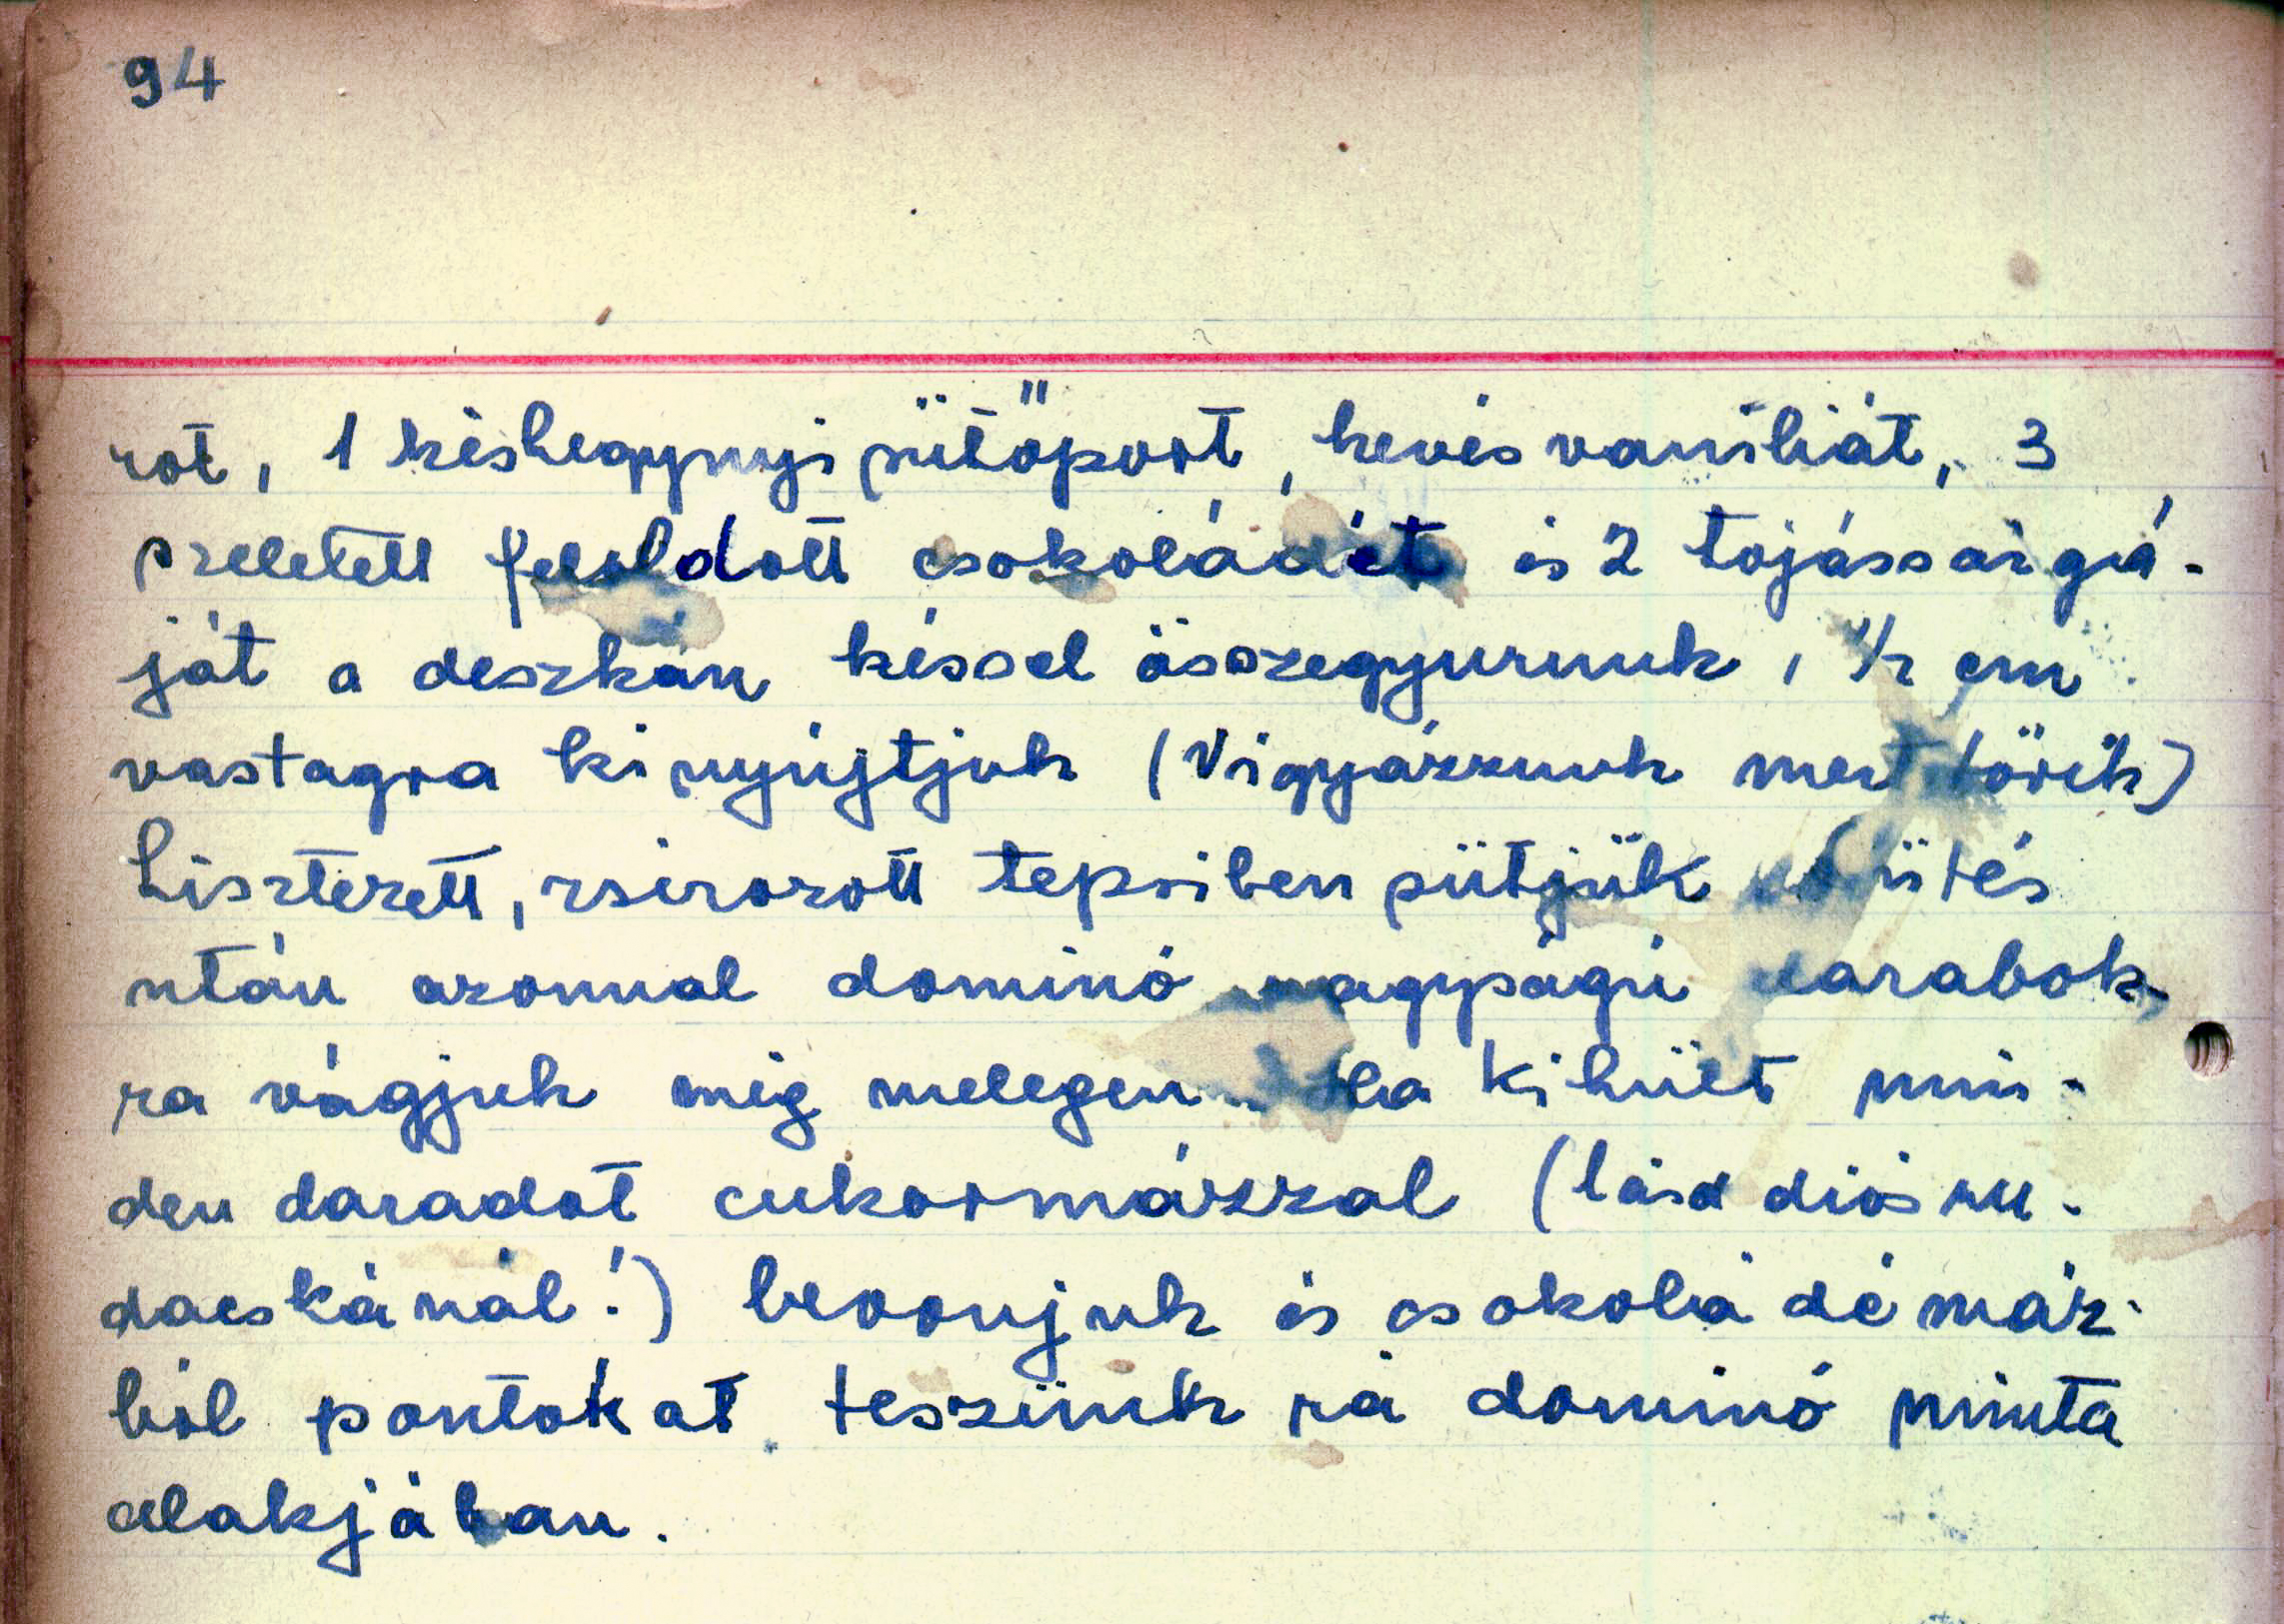 94
rot, 1 késhegynyi sütőport, kevés vaníliát, 3
szeletett feloldott csokoládét és 2 tojássárgá-
ját a deszkán késsel összegyurunk, 1/2 cm
vastagra kinyújtjuk (Vigyázzunk mert törik)
Lisztezett, zsirozott tepsiben sütjük sütés
után azonnal dominó nagyságú darabok-
ra vágjuk míg melegen. Ha kihült min-
den daradot cukormázzal (lásd diós ru-
dacskánál!) bevonjuk és csokoládé máz-
ból pontokat teszünk rá dominó minta
alakjában.